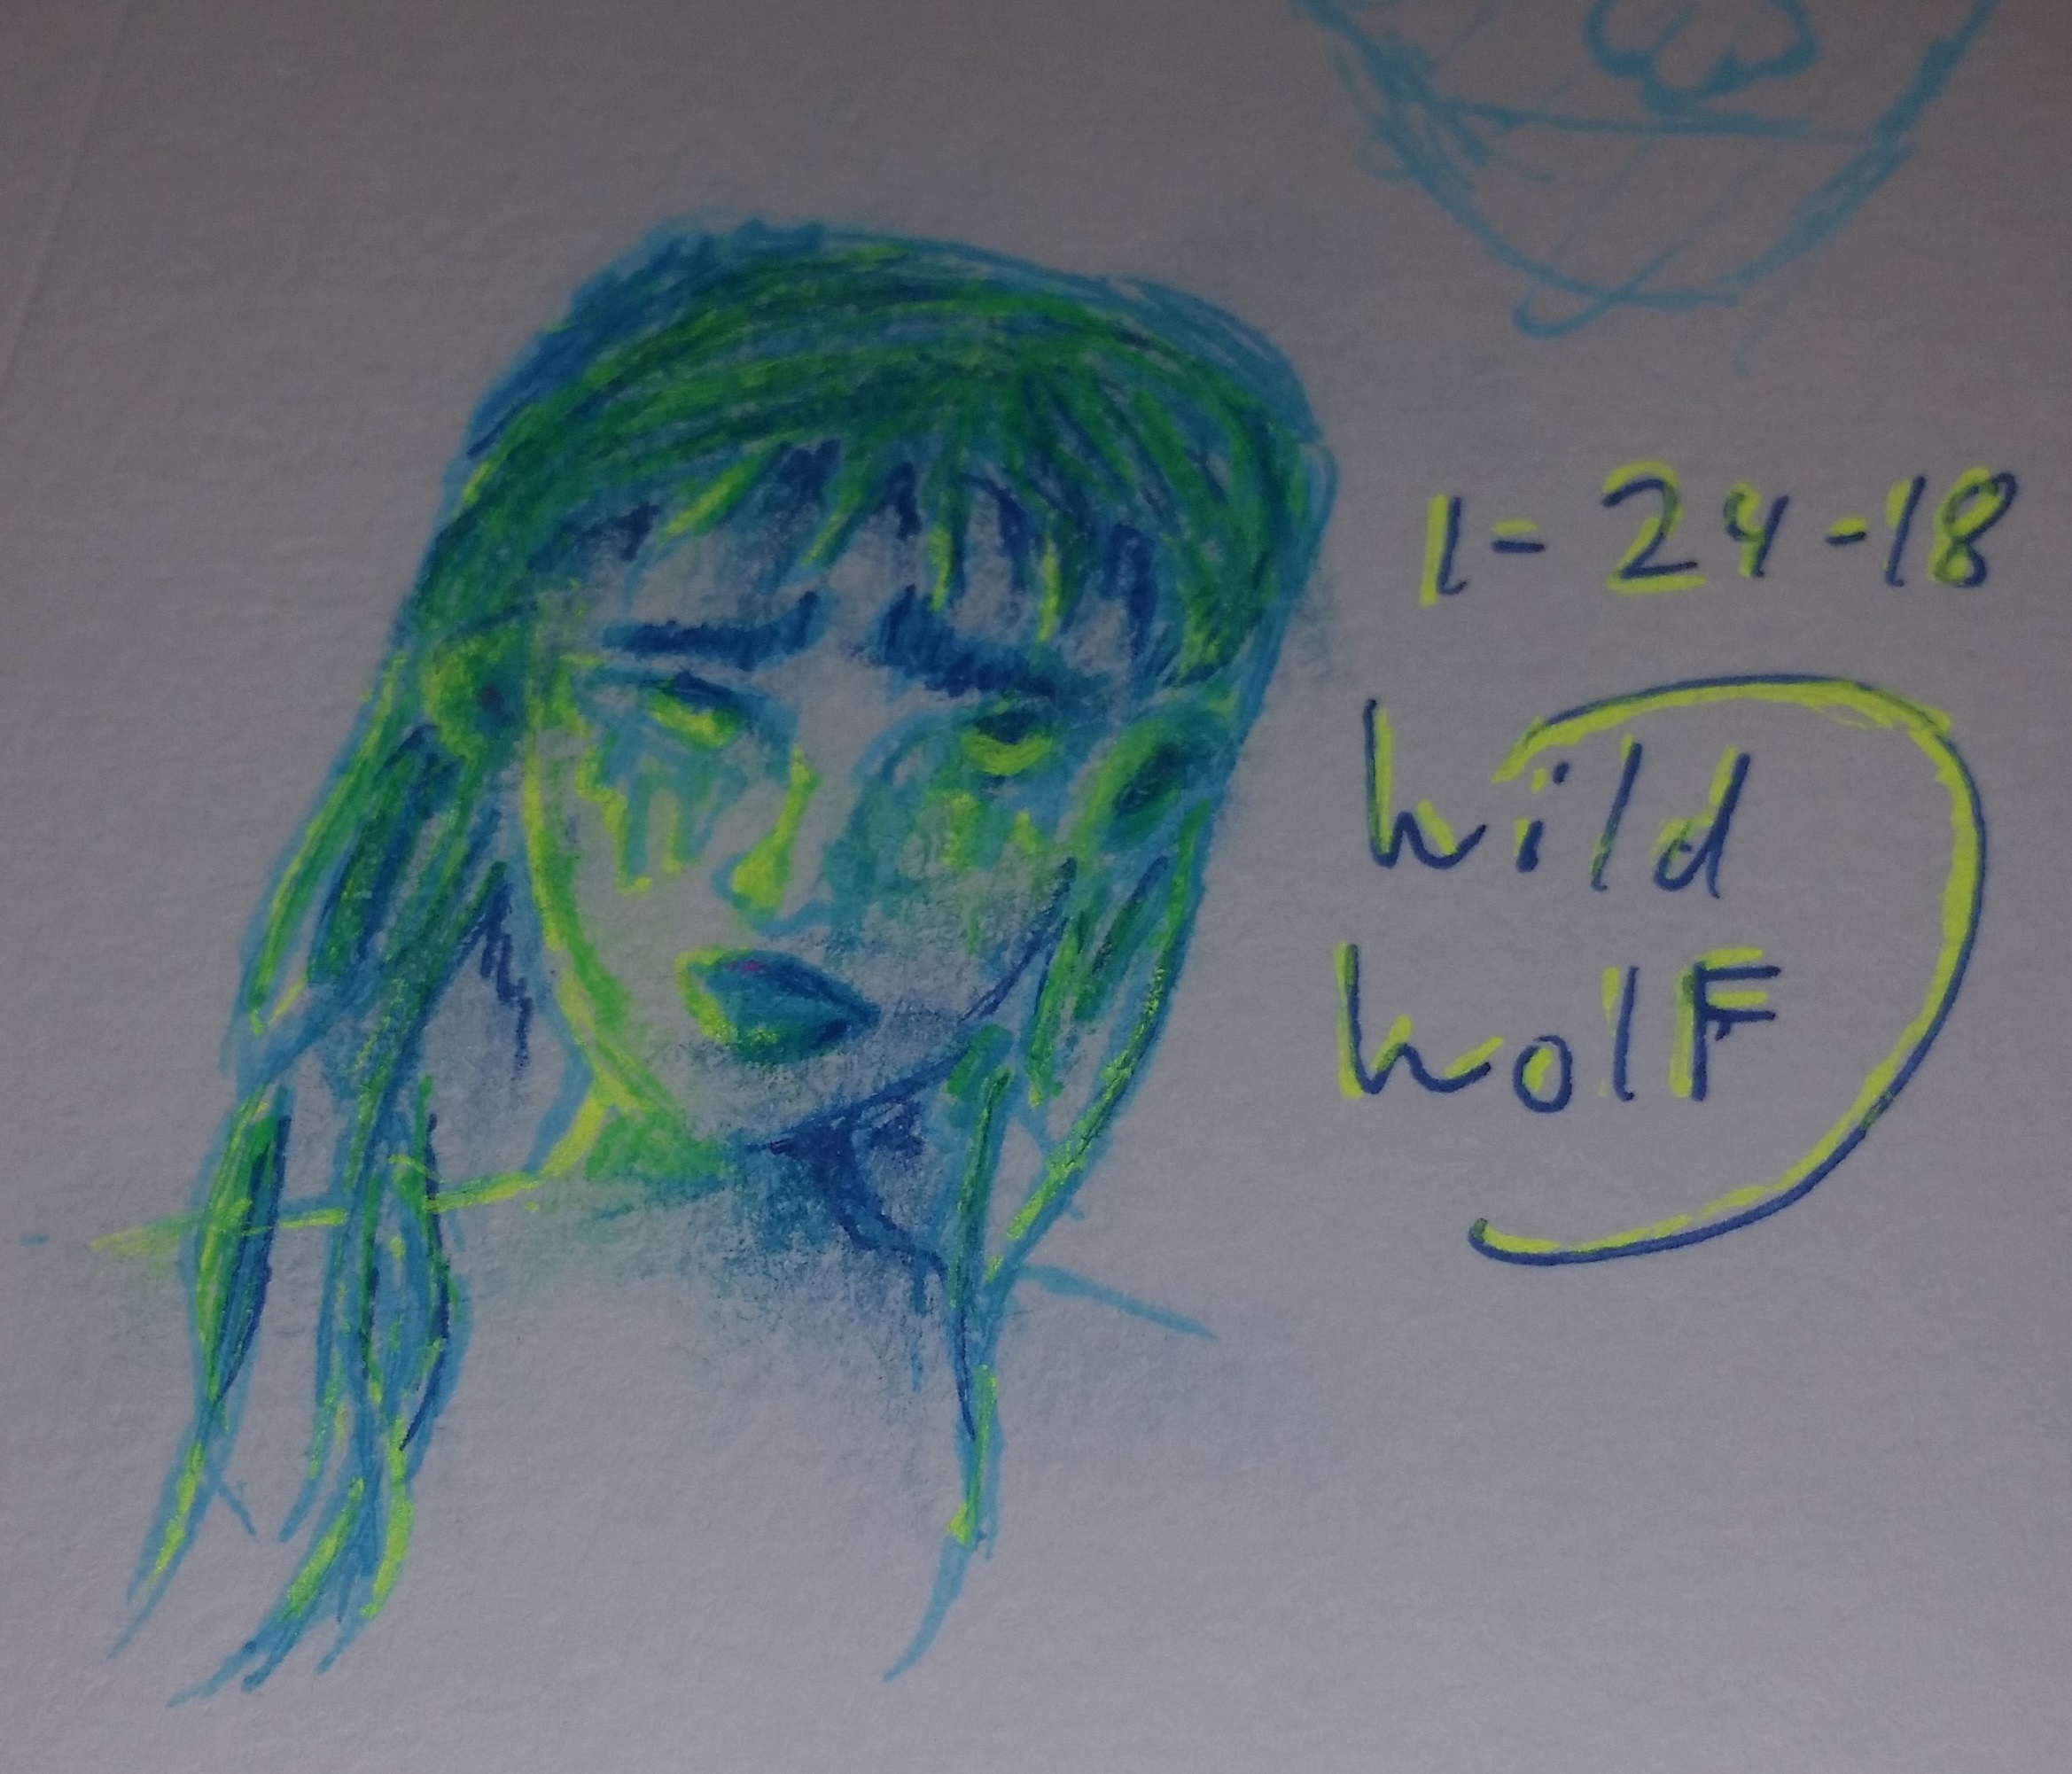 1-24-18
wild
wolF